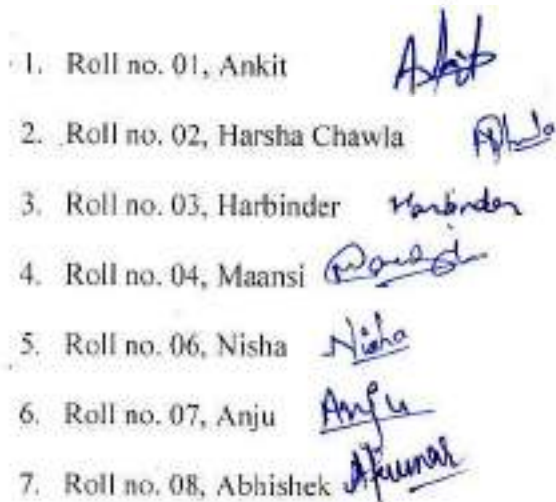 1. Roll no. 01, Ankit Ankit
2. Roll no. 02, Harsha Chawla
3. Roll no. 03, Harbinder Harbinder
4. Roll no. 04, Maansi
5. Roll no. 06, Nisha Nisha
6. Roll no. 07, Anju Anju
7. Roll no. 08, Abhishek